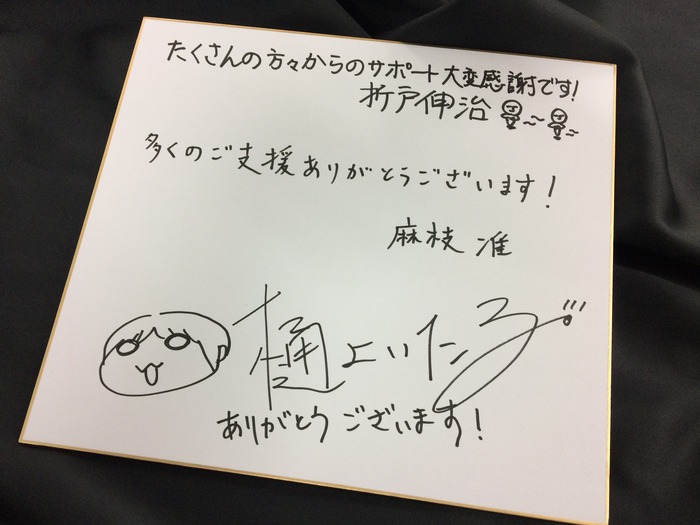 たくさんの方々からのサポート大変感謝です!
折戸伸治
多くのご支援ありがとうございます!
麻枝准
樋上いたる
ありがとうございます!